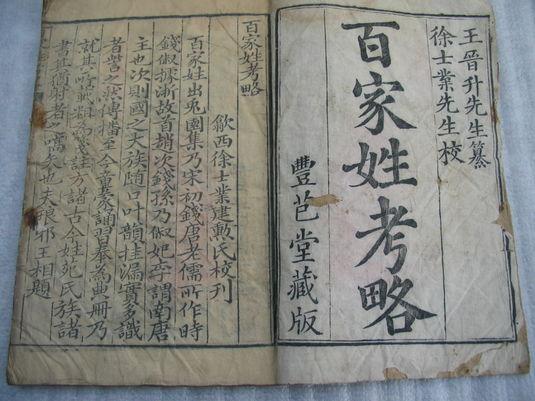 王晉升先生纂
徐士業先生校
百家姓考略
豐芑堂藏版
百家姓考略
歙西徐士業建勳氏校刊
百家姓出兔園集乃宋初錢唐老儒所作時
錢俶據浙故首趙次錢孫乃俶妃李謂南唐
主也次則國之大族随口叶韻挂漏實多識
者訾之然傳播至今童蒙誦習奉為典冊乃
就其粗為箋註諸古今姓苑氏族諸
書其猶射者之嚆矢也夫琅邪王相題